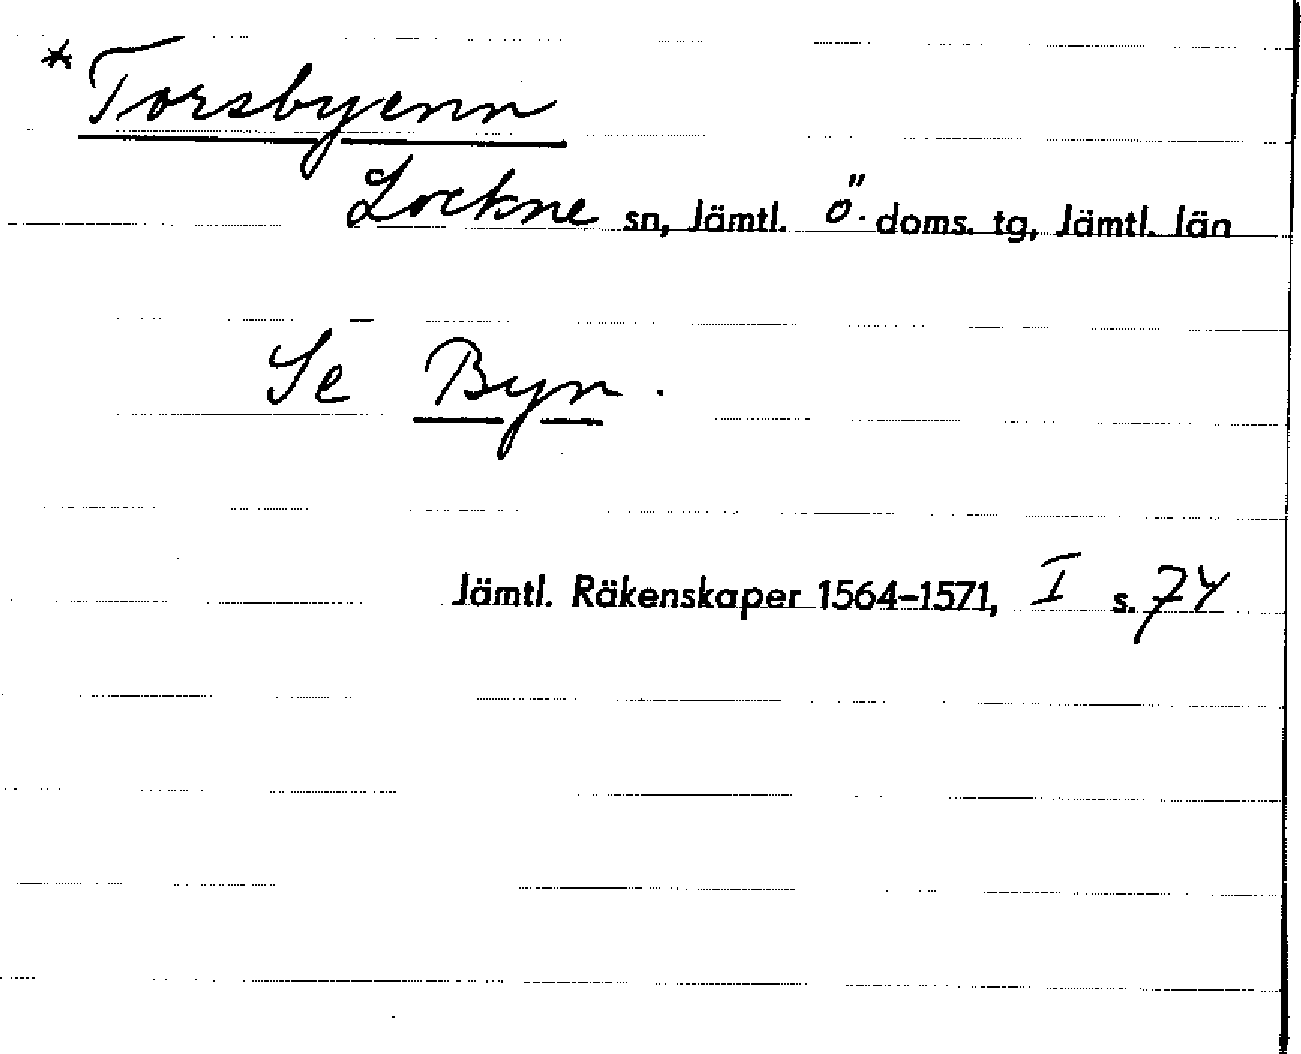 * Torsbyenn
Lockne sn, Jämtl. Ö. doms. tg, Jämtl. län
Se Byn.
Jämtl. Räkenskaper 1564–1571, I s. 74